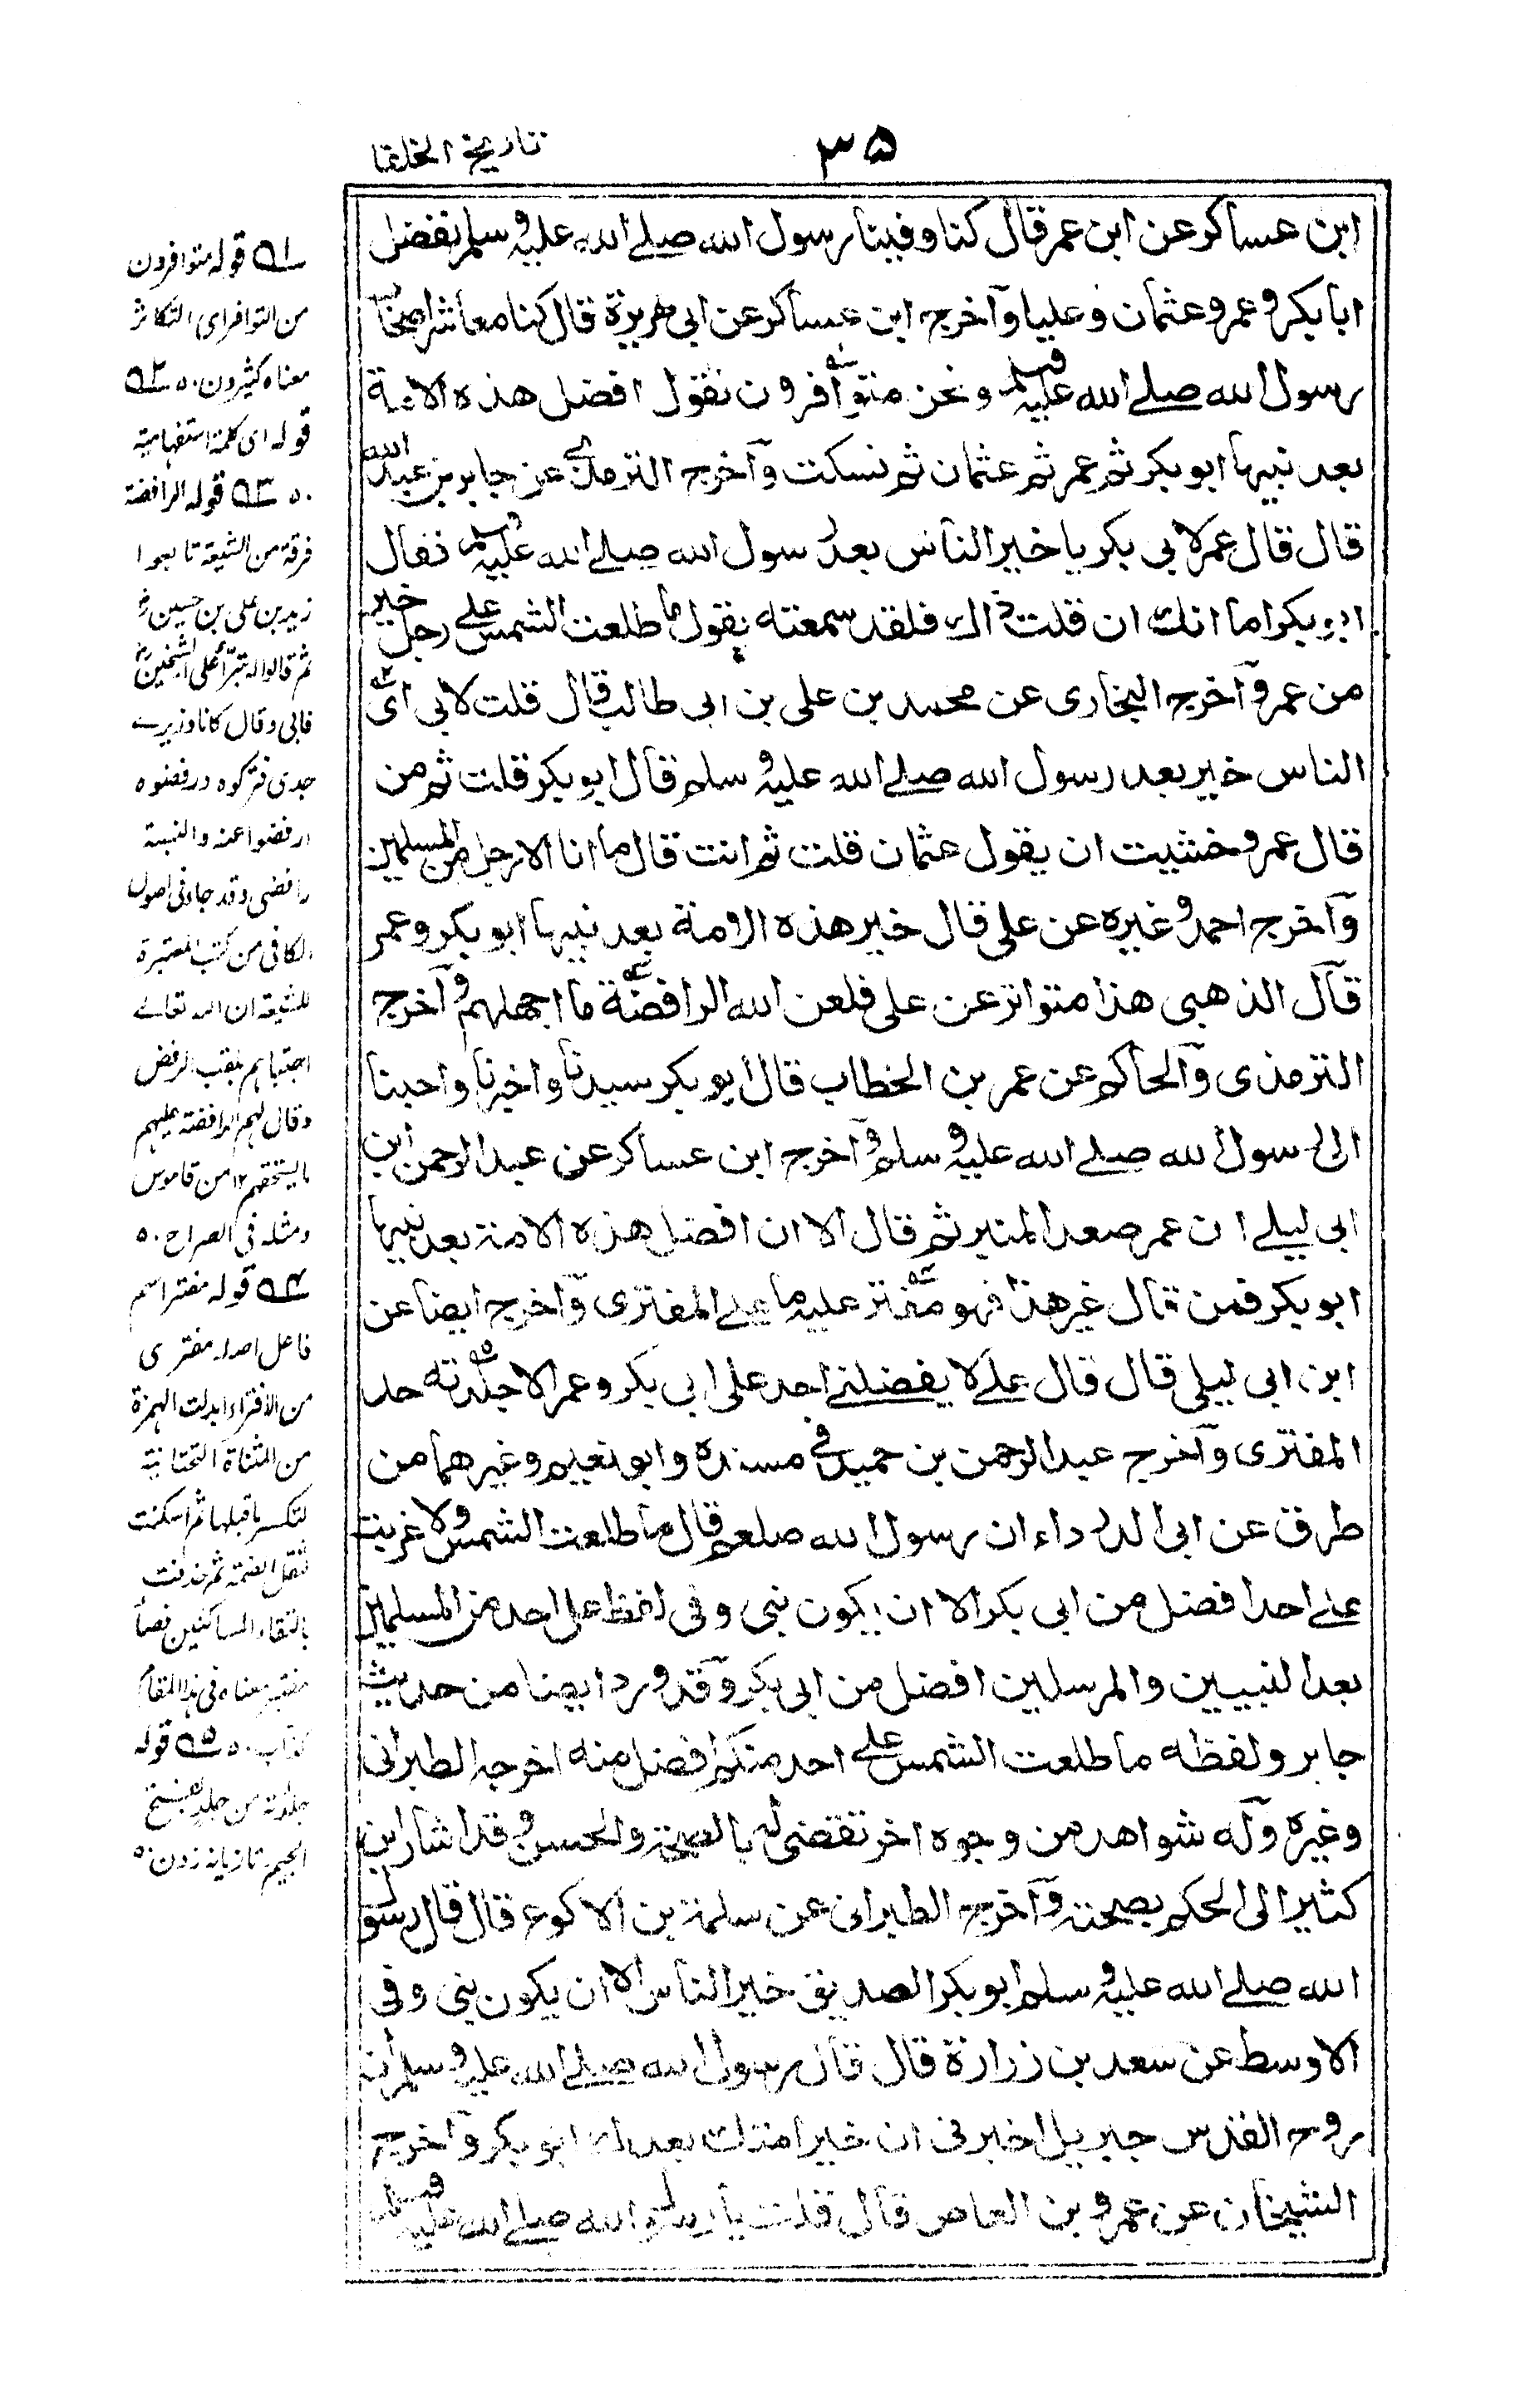 ٣٥
تاريخ الخلفا
ابن عساكر عن ابن عمر قال كنا وفينا رسول الله صلے الله عليه و سلم نفضل
ابا بكر و عمر و عثمان و عليا و آخرج ابن عساكر عن ابى هريرة قال كنا معاشر اصحاب
رسول الله صلے الله عليه وسلم و نحن متوافرون نقول افضل هذه الامة
بعد نبيها ابو بكر ثم عمر ثم عثمان ثم نسكت و آخرج الترمذے عن جابر بن عبد الله
قال قال عمر لابى بكر يا خير الناس بعد رسول الله صلے الله عليه وسلم فقال
ابو بكر اما انك ان قلت ذاك فلقد سمعته يقول ما طلعت الشمس علے رجل خير
من عمر و آخرج البخارى عن محمد بن على بن ابى طالب قال قلت لابى اى
الناس خير بعد رسول الله صلے الله عليه و سلم قال ابو بكر قلت ثم من
قال عمر و خشيت ان يقول عثمان قلت ثم انت قال ما انا الا رجل من المسلمين
و آخرج احمد و غيره عن على قال خير هذه الامة بعد نبيها ابو بكر و عمر
قال الذهبى هذا متواتر عن على فلعن الله الرافضة ما اجهلهم و آخرج
الترمذى و الحاكم عن عمر بن الخطاب قال ابو بكر سيدنا و اخيرنا و احبنا
الى رسول الله صلے الله عليه و سلم و آخرج ابن عساكر عن عبد الرحمن ابن
ابى ليلے ان عمر صعد المنبر ثم قال الا ان افضل هذه الامة بعد نبيها
ابو بكر فمن قال غير هذا فهو مفتر عليه ما علے المفترى و آخرج ايضا عن
ابن ابى ليلى قال قال علے لا يفضلنے احد على ابى بكر و عمر الا جلدته حد
المفترى و آخرج عبد الرحمن بن حميد فى مسنده و ابو نعيم و غيرهما من
طرق عن ابى الدرداء ان رسول الله صلعم قال ما طلعت الشمس و لا غربت
علے احد افضل من ابى بكر الا ان يكون نبى و فى لفظ على احد من المسلمين
بعد النبيين و المرسلين افضل من ابى بكر و قد ورد ايضا من حديث
جابر و لفظه ما طلعت الشمس علے احد منكم افضل منه اخرجه الطبرانى
و غيره و له شواهد من وجوه اخر تقتضى له بالصحة و الحسن و قد اشار ابن
كثير الى الحكم بصحته و آخرج الطبرانى عن سلمة بن الاكوع قال قال رسول
الله صلے الله عليه و سلم ابو بكر الصديق خير الناس الا ان يكون نبى و فى
الاوسط عن سعد بن زرارة قال قال رسول الله صلے الله عليه و سلم ان
روح القدس جبريل اخبرنى ان خير امتك بعدك ابو بكر و آخرج
الشيخان عن عمرو بن العاص قال قلت يا رسول الله صلے الله عليه وسلم
١ قوله متوافرون
من التوافر اى التكاثر
معناه كثيرون ٢
قوله اى كلمة استفهامية
٣ قوله الرافضة
فرقة من الشيعة تابعوا
زيد بن على بن حسين رض
ثم قالوا له تبرأ على الشيخين رض
فابى و قال كانا وزيرے
جدى فتركوه و رفضوه
ارفضوا عنه و النسبة
رافضى و قد جاء فى اصول
الكافى من كتب المعتبرة
للشيعة ان الله تعالے
اجتباهم بلقب الرفض
و قال لهم الرافضة عليهم
ما يستحقهم ١٢ من قاموس
و مثله فى الصراح
٤ قوله مفتر اسم
فاعل اصله مفترى
من الافتراء ابدلت الهمزة
من المثناة التحتانية
لتكسر ما قبلها ثم اسكنت
لثقل الضمة ثم حذفت
بالتقاء الساكنين فصار
مفتر معناه فى هذا المقام
كذاب ٥ قوله
جلدته من جلد بفتح
الجيم تازيانه زدن